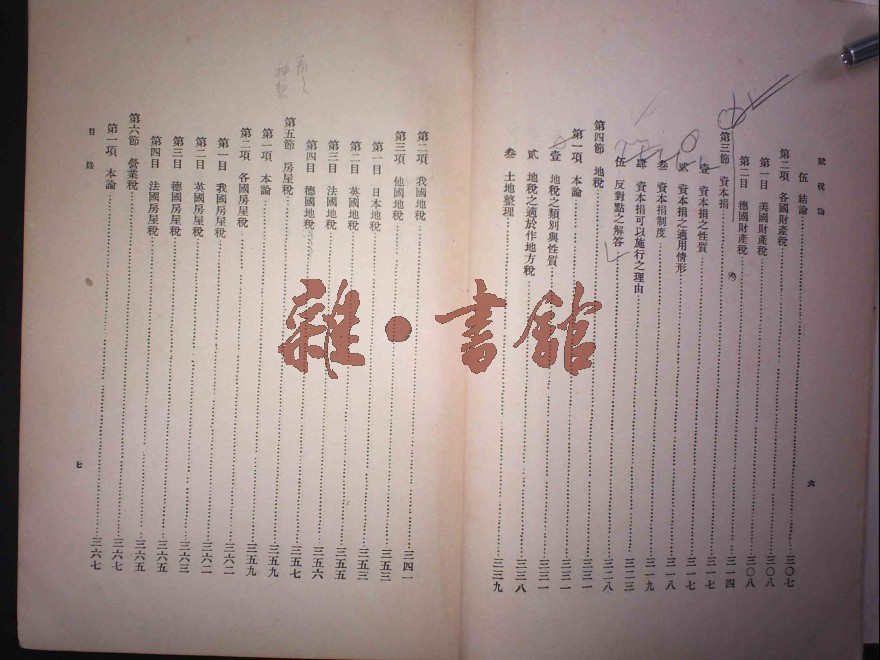 賦稅論
伍 結論 三〇七
第二項 各國財產稅 三〇八
第一目 美國財產稅 三〇八
第二目 德國財產稅 三一四
第三節 資本捐 三一七
壹 資本捐之性質 三一七
貳 資本捐之適用情形 三一八
叁 資本捐制度 三一九
肆 資本捐可以施行之理由 三二三
伍 反對點之解答 三二八
第四節 地稅 三三一
第一項 本論 三三一
壹 地稅之類別與性質 三三一
貳 地稅之適於作地方稅 三三八
叁 土地整理 三三九
六
第二項 我國地稅 三四一
第三項 他國地稅 三五三
第一目 日本地稅 三五三
第二目 英國地稅 三五五
第三目 法國地稅 三五五
第四目 德國地稅 三五六
第五節 房屋稅 三五七
第一項 本論 三五九
第二項 各國房屋稅 三五九
第一目 我國房屋稅 三六二
第二目 英國房屋稅 三六二
第三目 德國房屋稅 三六三
第四目 法國房屋稅 三六五
第六節 營業稅 三六七
第一項 本論 三六七
目錄
七
雜·書館